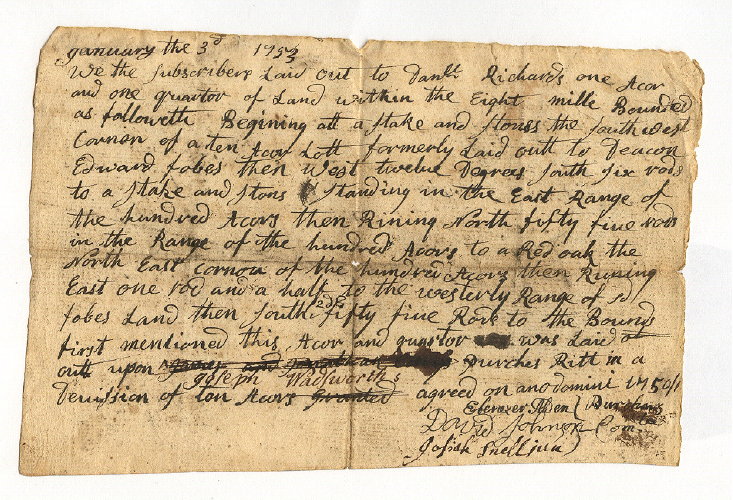 ganuary the 3d 1753
We the Subscribers Laid out to Danll. Richards one Acor
and one quartor of Land within the Eight mille Bounded
as followeth Begining att a Stake and Stons the South west
Cornor of a ten Acor Lott formerly Laid outt to Deacon
Edward fobes then West twelve Degres South Six rods
to a Stake and Stons Standing in the East Range of
the hundred Acors then Rining North fifty five rods
in the Range of the hundred Acors to a Red oak the
North East Cornor of the hundred Acors then Runing
East one rod and a half to the westerly Range of sd
fobes Land then South fifty five Rods to the Bounds
first mentioned this Acor and quartor was Laid
out upon Purches Ritt in a
Joseph Wadsworths
Devission of ton Acors granted agreed on anodomini 1750/1
Ebenezer Alden
David Johnson Com
Josiah Snell jun